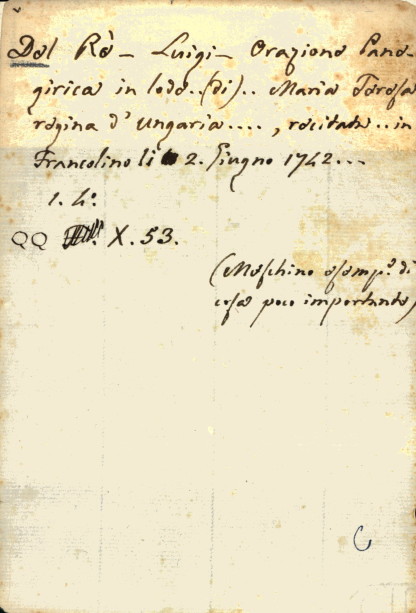 Dal Rè – Luigi – Orazione Pane-
girica in lode..(di).. Maria Teresa
regina d'Ungaria...., recitata..in
Francolino li 2. Giugno 1742...
1. 4°.
QQ X. 53.
(Meschino esemp.e di
cosa poco importante)
C